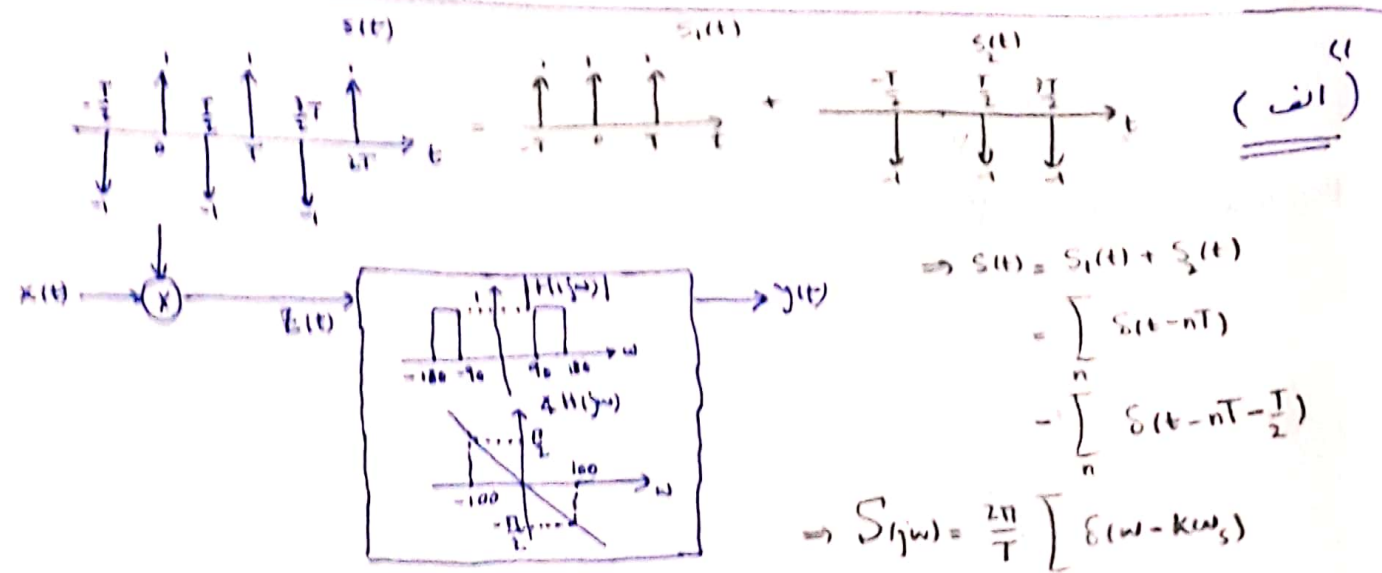 الف)
s(t) = s₁(t) + s₂(t)
-T/2 0 T/2 T 3/2 T 2T t
1 1 1
-1 -1 -1
-T 0 T t
1 1 1
-T/2 T/2 3T/2 t
-1 -1 -1
x(t) × z(t) y(t)
|H(jω)|
1
-180 -90 90 180 ω
∡H(jω)
π/2
-100 100 ω
-π/2
⇒ s(t) = s₁(t) + s₂(t)
= ∑n δ(t-nT)
- ∑n δ(t-nT-T/2)
⇒ S(jω) = 2π/T ∑ δ(ω-kωs)